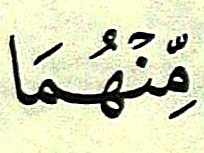 مِّنْهُمَا